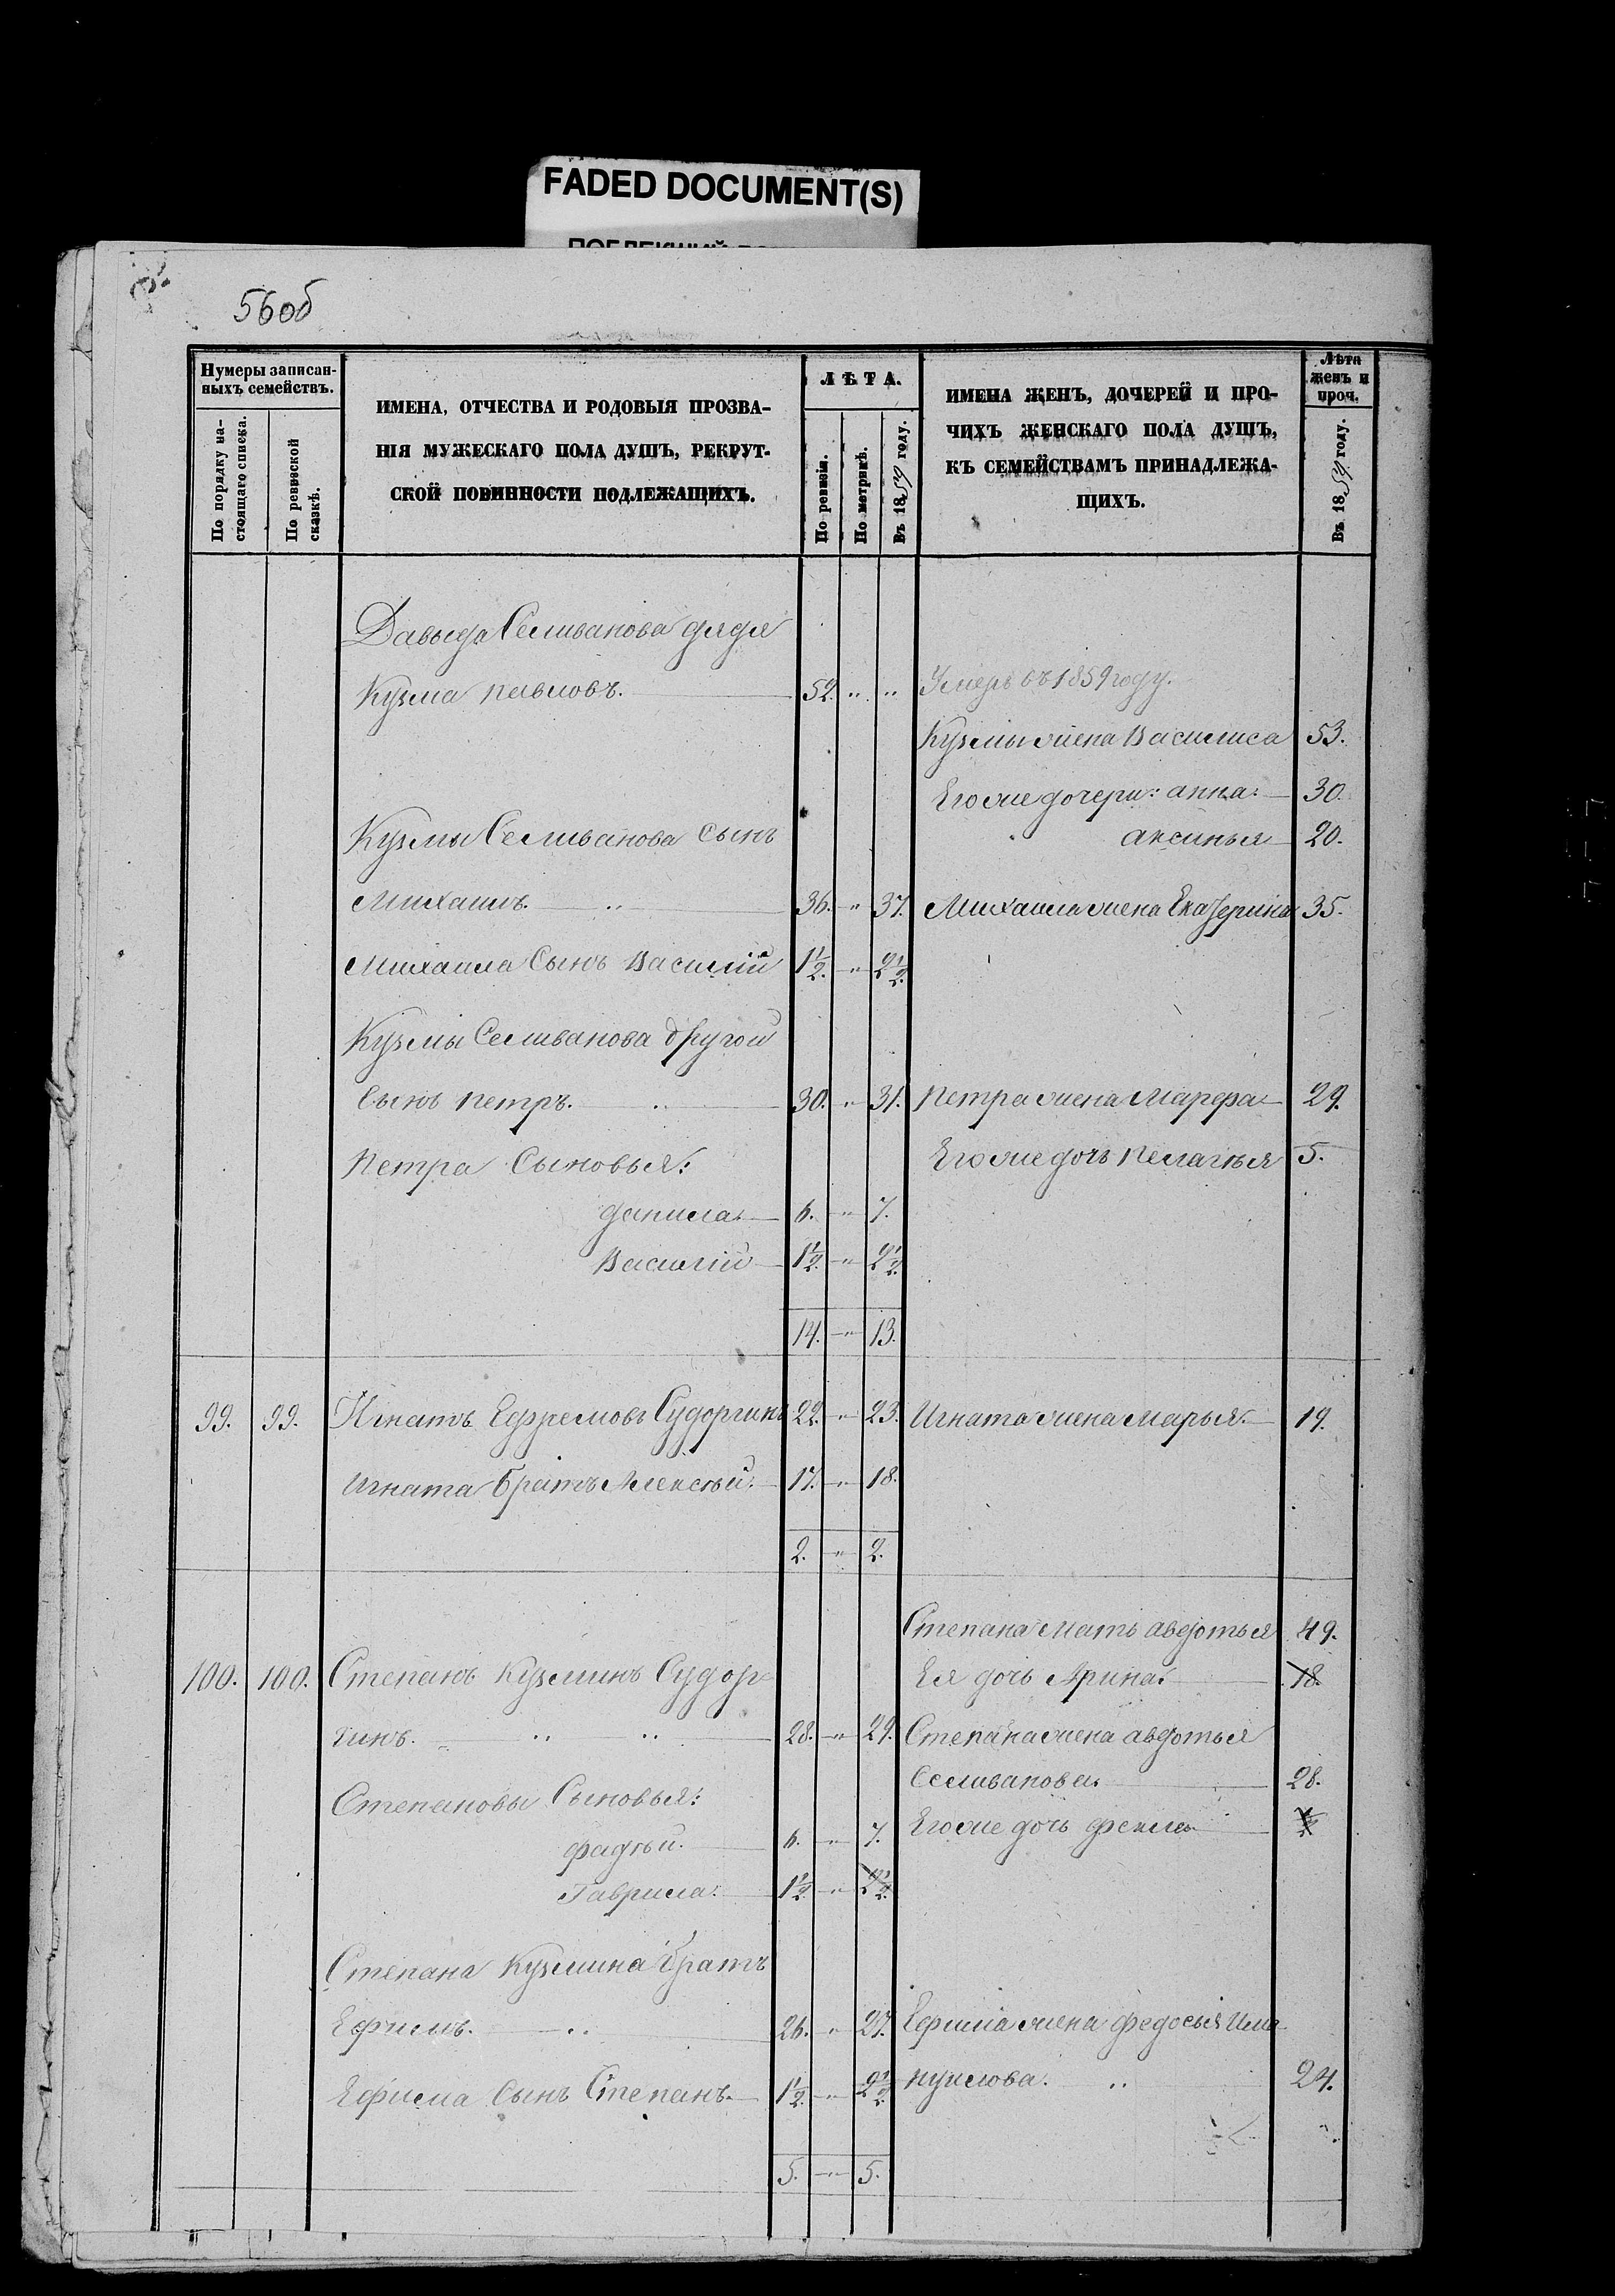 FADED DOCUMENT(S)
56об
Нумеры записан-
ныхъ семействъ.
По порядку на-
стоящаго списка.
По ревизской
сказкѣ.
ИМЕНА, ОТЧЕСТВА И РОДОВЫЯ ПРОЗВА-
НІЯ МУЖЕСКАГО ПОЛА ДУШЪ, РЕКРУТ-
СКОЙ ПОВИННОСТИ ПОДЛЕЖАЩИХЪ.
ЛѢТА.
По ревизіи.
По метрикѣ.
Въ 1859 году.
ИМЕНА ЖЕНЪ, ДОЧЕРЕЙ И ПРО-
ЧИХЪ ЖЕНСКАГО ПОЛА ДУШЪ,
КЪ СЕМЕЙСТВАМЪ ПРИНАДЛЕЖА-
ЩИХЪ.
Лѣта
женъ и
проч.
Въ 1859 году.
Давыда Селиванова дядя
Кузма павловъ. 52. " " Умеръ въ 1859 году.
Кузмы жена Василиса 53.
Его же дочери: анна 30.
Кузмы Селиванова Сынъ
аксинья 20.
Михаилъ. 36. " 37. Михаила жена Екатерина 35.
Михаила Сынъ Василій 1½. " 2½.
Кузмы Селиванова другой
Сынъ петръ. 30. " 31. Петра жена Марфа 29.
Петра Сыновья: Его же дочь пелагья 5.
данила 6. " 7.
Василій 1½. " 2½.
14. " 13.
99. 99. Игнатъ Ефремовъ Судоргинъ 22. " 23. Игната жена марья. 19.
Игната братъ Алексѣй. 17. " 18.
2. " 2.
Степана мать авдотья 49.
100. 100. Степанъ Кузминъ Судор- Ея дочь Арина 18.
гинъ. 28. " 29. Степана жена авдотья
Селиванова 28.
Степановы Сыновья:
Его же дочь фекла
фадѣй. 6. " 7.
Гаврила. 1½. " 2½.
Степана Кузмина братъ
Ефимъ. 26. " 27. Ефима жена федосья Има-
нуилова. 24.
Ефима Сынъ Степанъ. 1½. " 2½.
5. " 5.